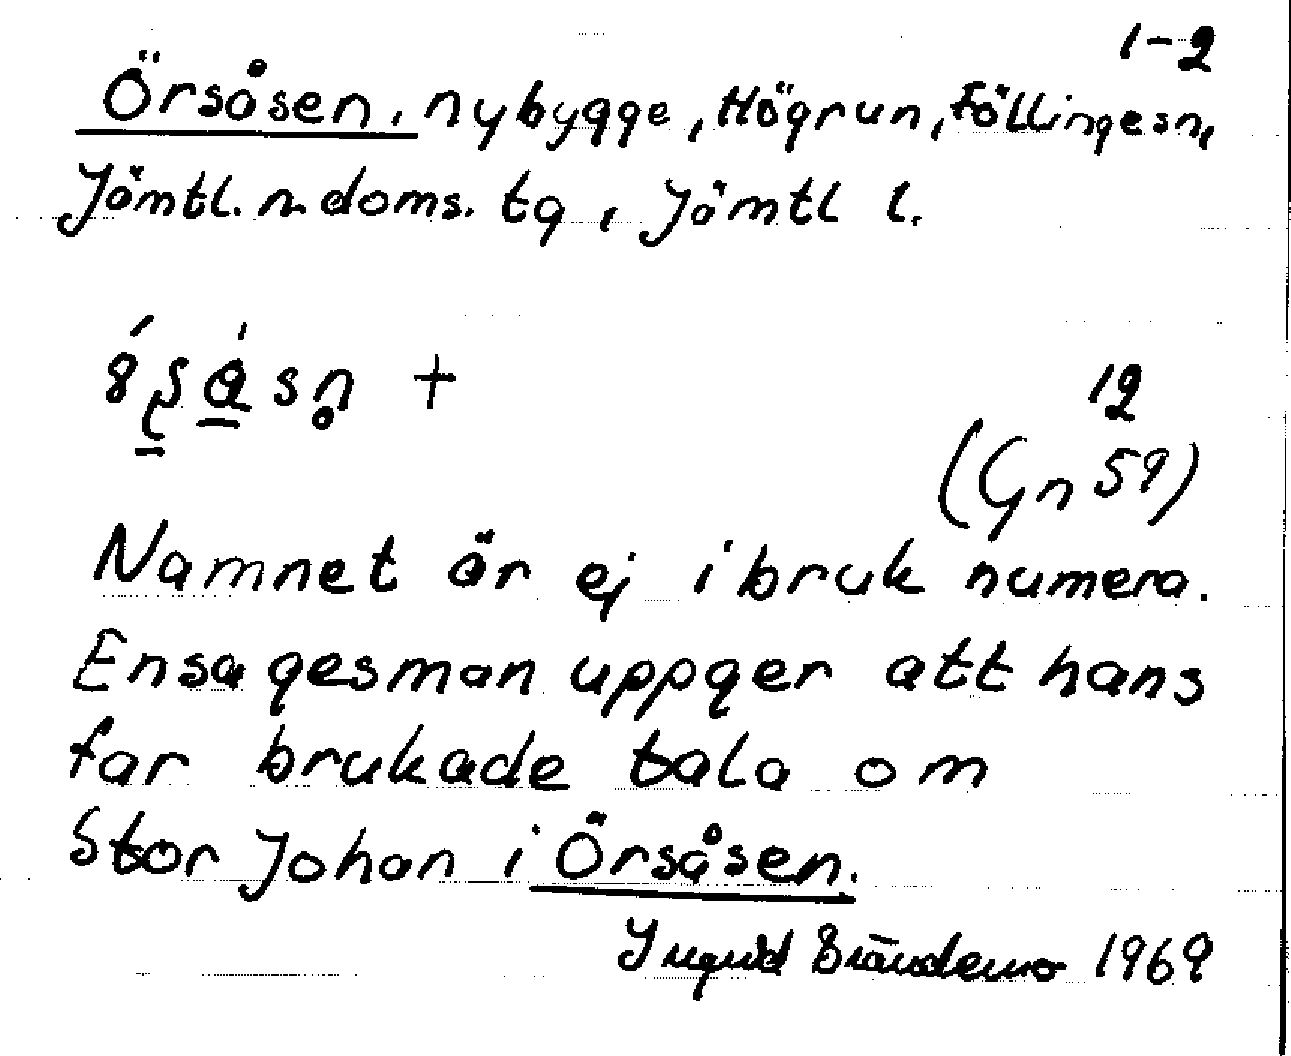 1-2
Örsåsen, nybygge, Högrun, Föllingesn,
Jämtl. n. doms. tg, Jämtl l.
+
12
(Gn 59)
Namnet är ej i bruk numera.
Ensagesman uppger att hans
far brukade tala om
Stor Johan i Örsåsen.
Ingrid Brändemo 1969